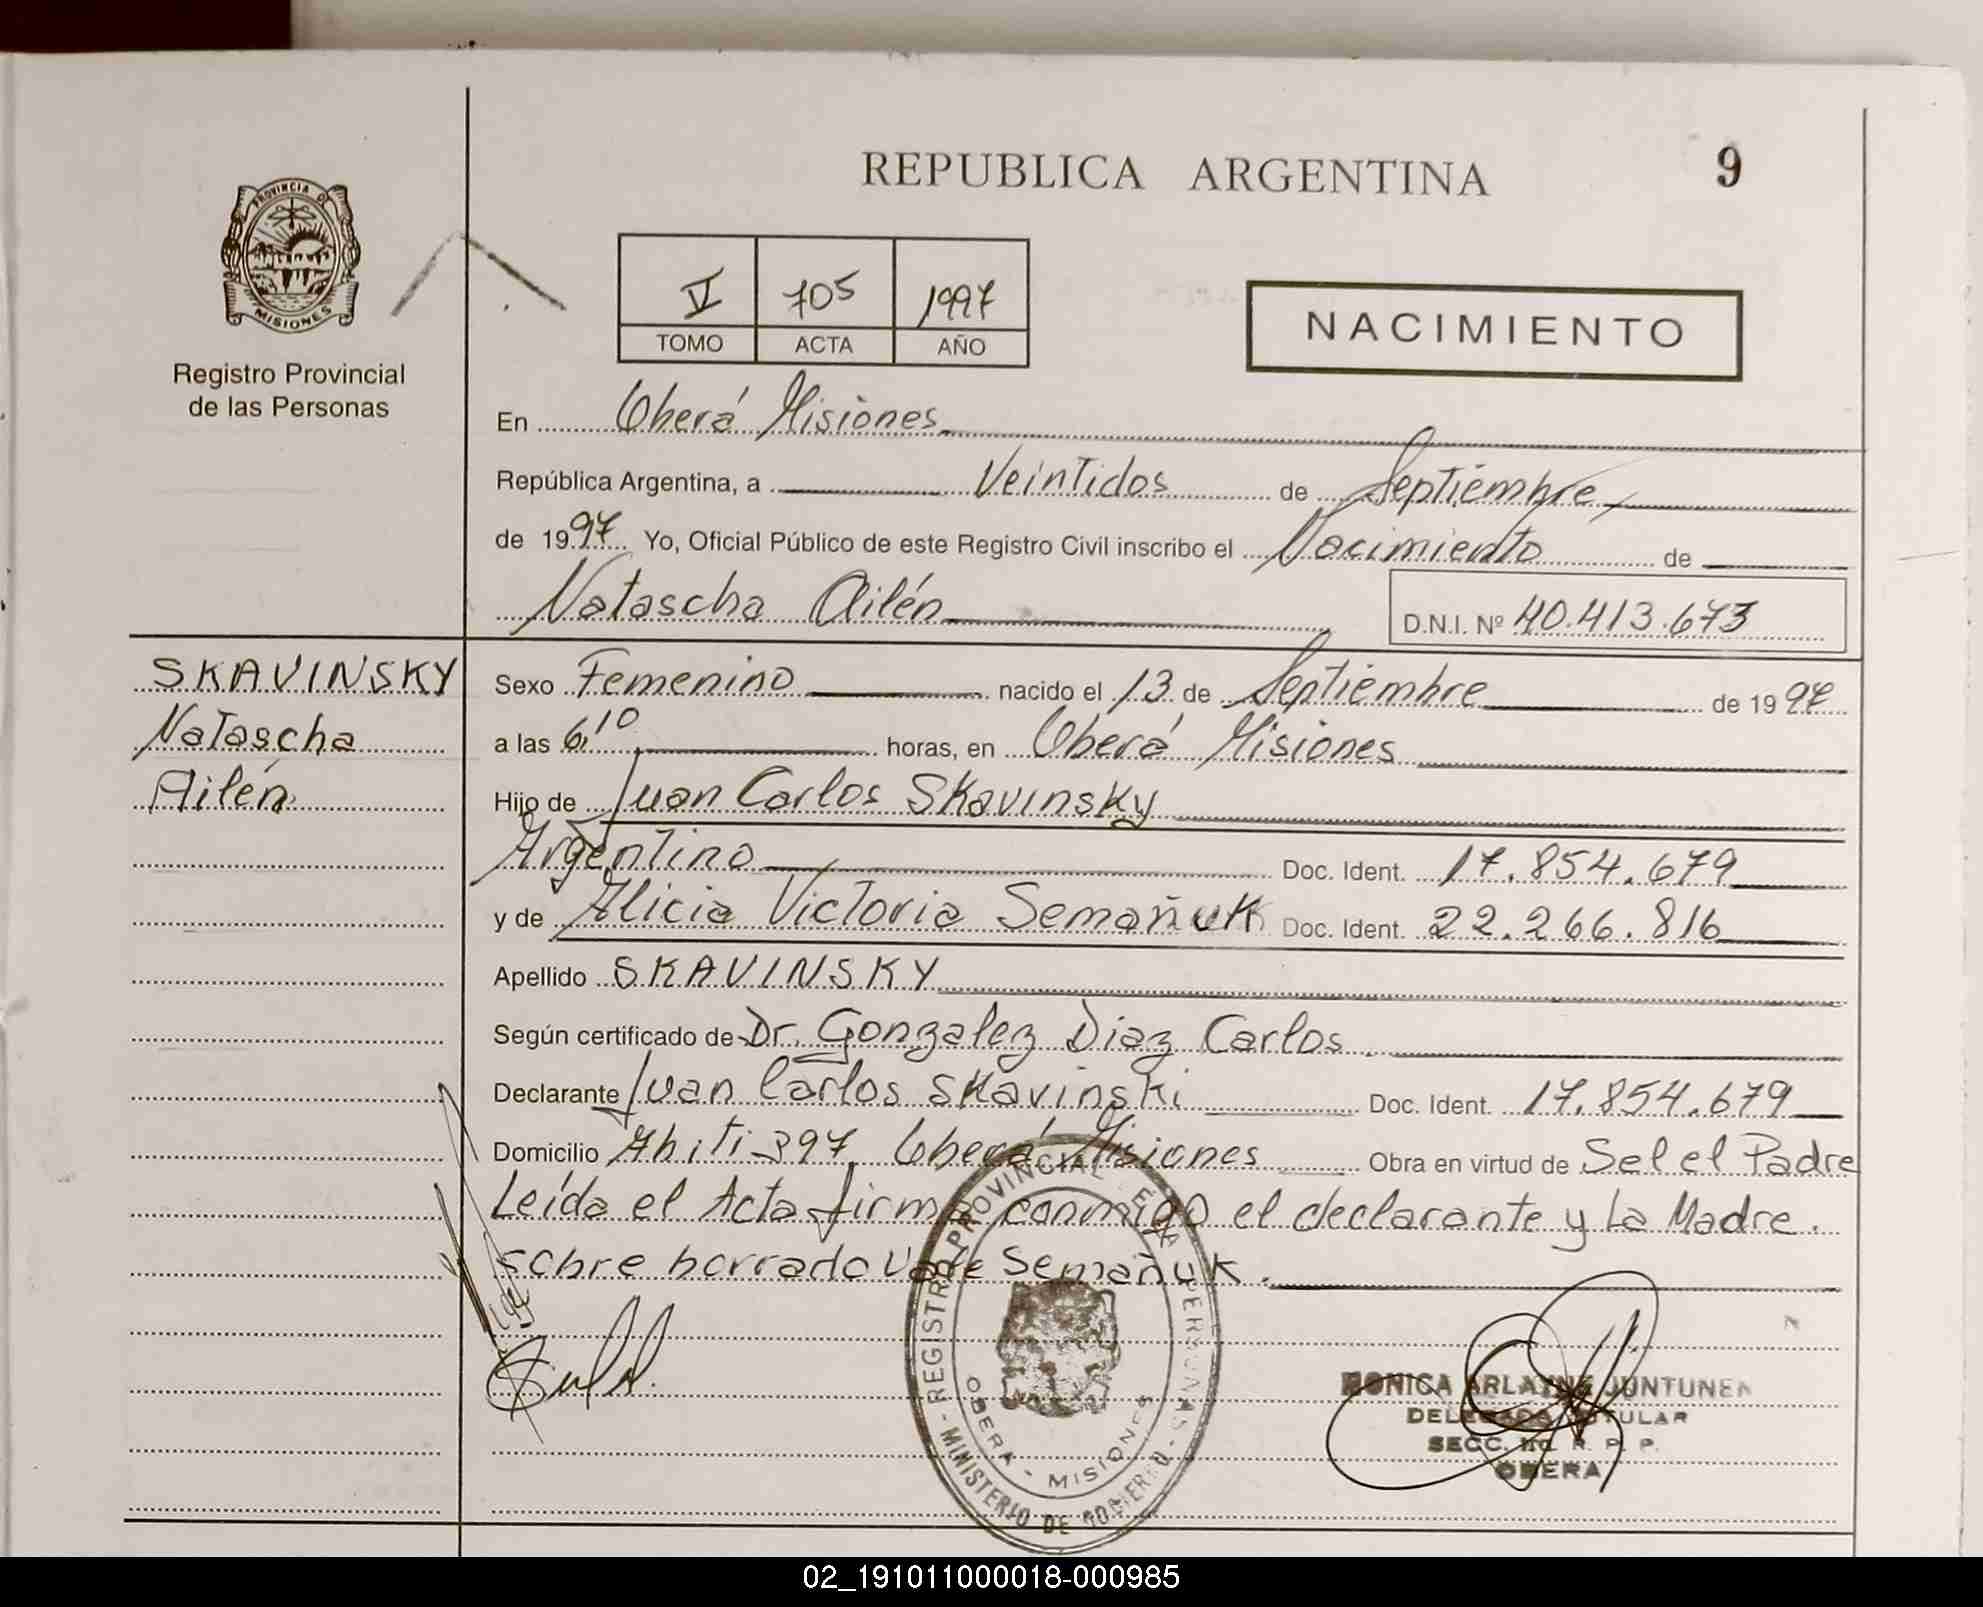 REPUBLICA ARGENTINA
9
PROVINCIA DE
MISIONES
Registro Provincial
de las Personas
V 705 1997
TOMO ACTA AÑO
NACIMIENTO
En Oberá Misiones
República Argentina, a Veintidos de Septiembre
de 1997 Yo, Oficial Público de este Registro Civil inscribo el Nacimiento de
Natascha Ailén D.N.I. Nº 40.413.673
SKAVINSKY
Natascha
Ailén
Sexo Femenino nacido el 13 de Septiembre de 1997
a las 6,10 horas, en Oberá Misiones
Hijo de Juan Carlos Skavinsky
Argentino Doc. Ident. 17.854.679
y de Alicia Victoria Semañuk Doc. Ident. 22.266.816
Apellido SKAVINSKY
Según certificado de Dr. Gonzalez Diaz Carlos
Declarante Juan Carlos Skavinski Doc. Ident. 17.854.679
Domicilio Ahiti 397 Oberá Misiones Obra en virtud de Sel el Padre
Leída el Acta firma conmigo el declarante y La Madre.
sobre borrado Vale Semañuk.
REGISTRO PROVINCIAL DE LAS PERSONAS
MINISTERIO DE GOBIERNO
OBERA - MISIONES
MONICA ARLAYNE JUNTUNEN
DELEGADA TITULAR
SECC. R. P. P.
OBERA
02_191011000018-000985